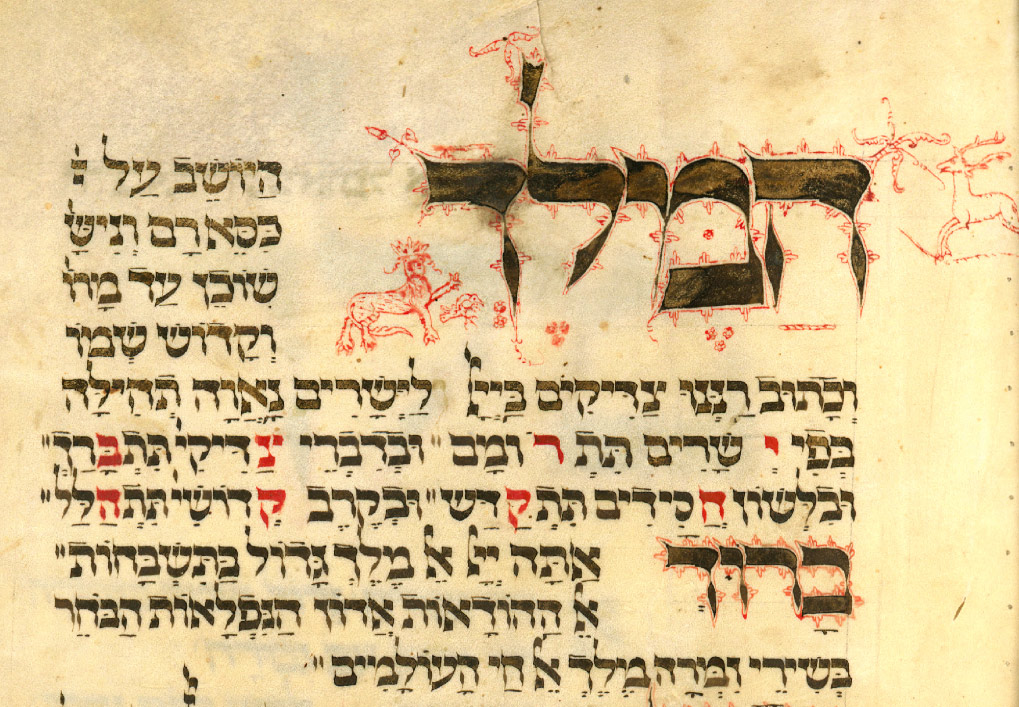 המלך
היושב על
כסא רם וניש
שוכן עד מרו
וקדוש שמו
וכתוב רננו צדיקים ביי׳ לישרים נאוה תהילה
בפי ישרים תתרומם ״ ובדברי צדיקי׳ תתברך ״
ובלשון חסידים תתקדש ״ ובקרב קדושי׳ תתהלל ״
ברוך אתה יי׳ אל מלך גדול בתשבחות ״
אל ההודאות אדון הנפלאות הבחר
בשירי זמרה מלך אל חי העולמים ״